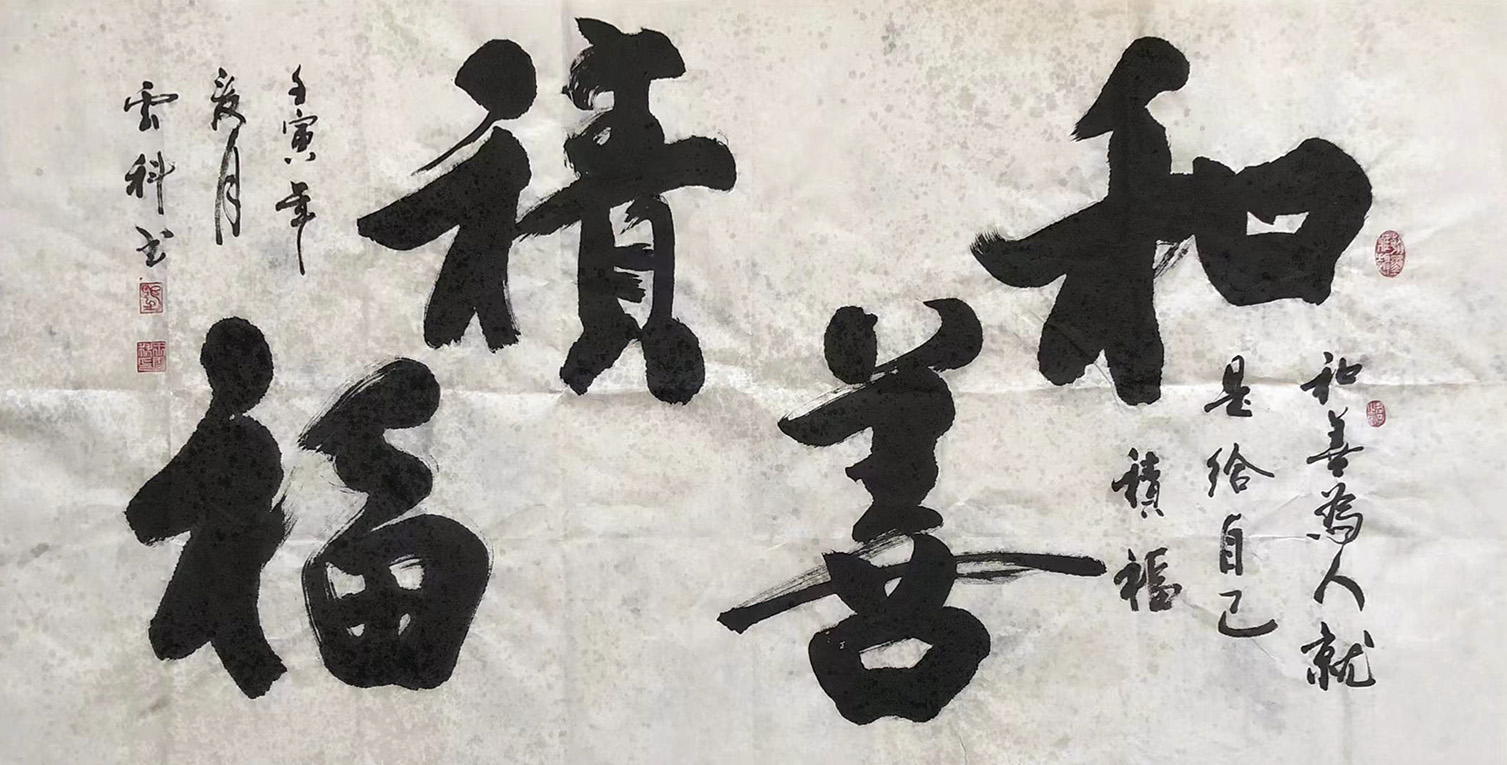 和善
積福
和善為人就
是給自己
積福
壬寅年
夏月
雲科书